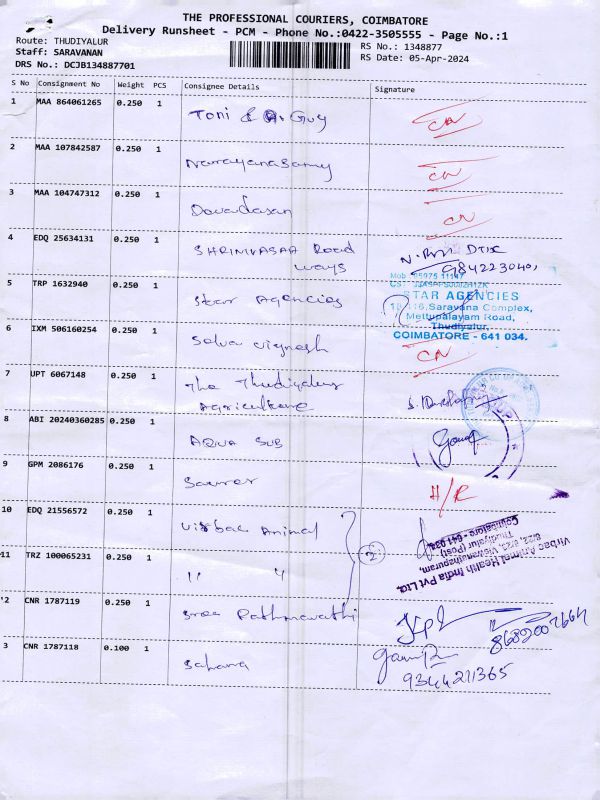 THE PROFESSIONAL COURIERS, COIMBATORE
Delivery Runsheet - PCM - Phone No.:0422-3505555 - Page No.:1
Route: THUDIYALUR
RS No.: 1348877
Staff: SARAVANAN
RS Date: 05-Apr-2024
DRS No.: DCJB134887701
S No Consignment No Weight PCS Consignee Details Signature
1 MAA 864061265 0.250 1 Toni & Guy
2 MAA 107842587 0.250 1 Narayanasamy
3 MAA 104747312 0.250 1 Devadasan
4 EDQ 25634131 0.250 1 SHRINIVASAA Road
ways
5 TRP 1632940 0.250 1 Star Agencies
STAR AGENCIES
Saravana Complex,
Mettupalayam Road,
Thudiyalur,
COIMBATORE - 641 034.
6 IXM 506160254 0.250 1 Selva Vignesh
7 UPT 6067148 0.250 1 The Thudiyalur
Agriculture
8 ABI 20240360285 0.250 1 AQUA SUB
9 GPM 2086176 0.250 1 Saurer H/R
10 EDQ 21556572 0.250 1 Virbac Animal
2
Virbac Animal Health India Pvt Ltd.
Thudiyalur (Post)
Coimbatore - 641 034.
11 TRZ 100065231 0.250 1 " "
'2 CNR 1787119 0.250 1 Sree Pathmavathi
3 CNR 1787118 0.100 1 Sahana
9344211365